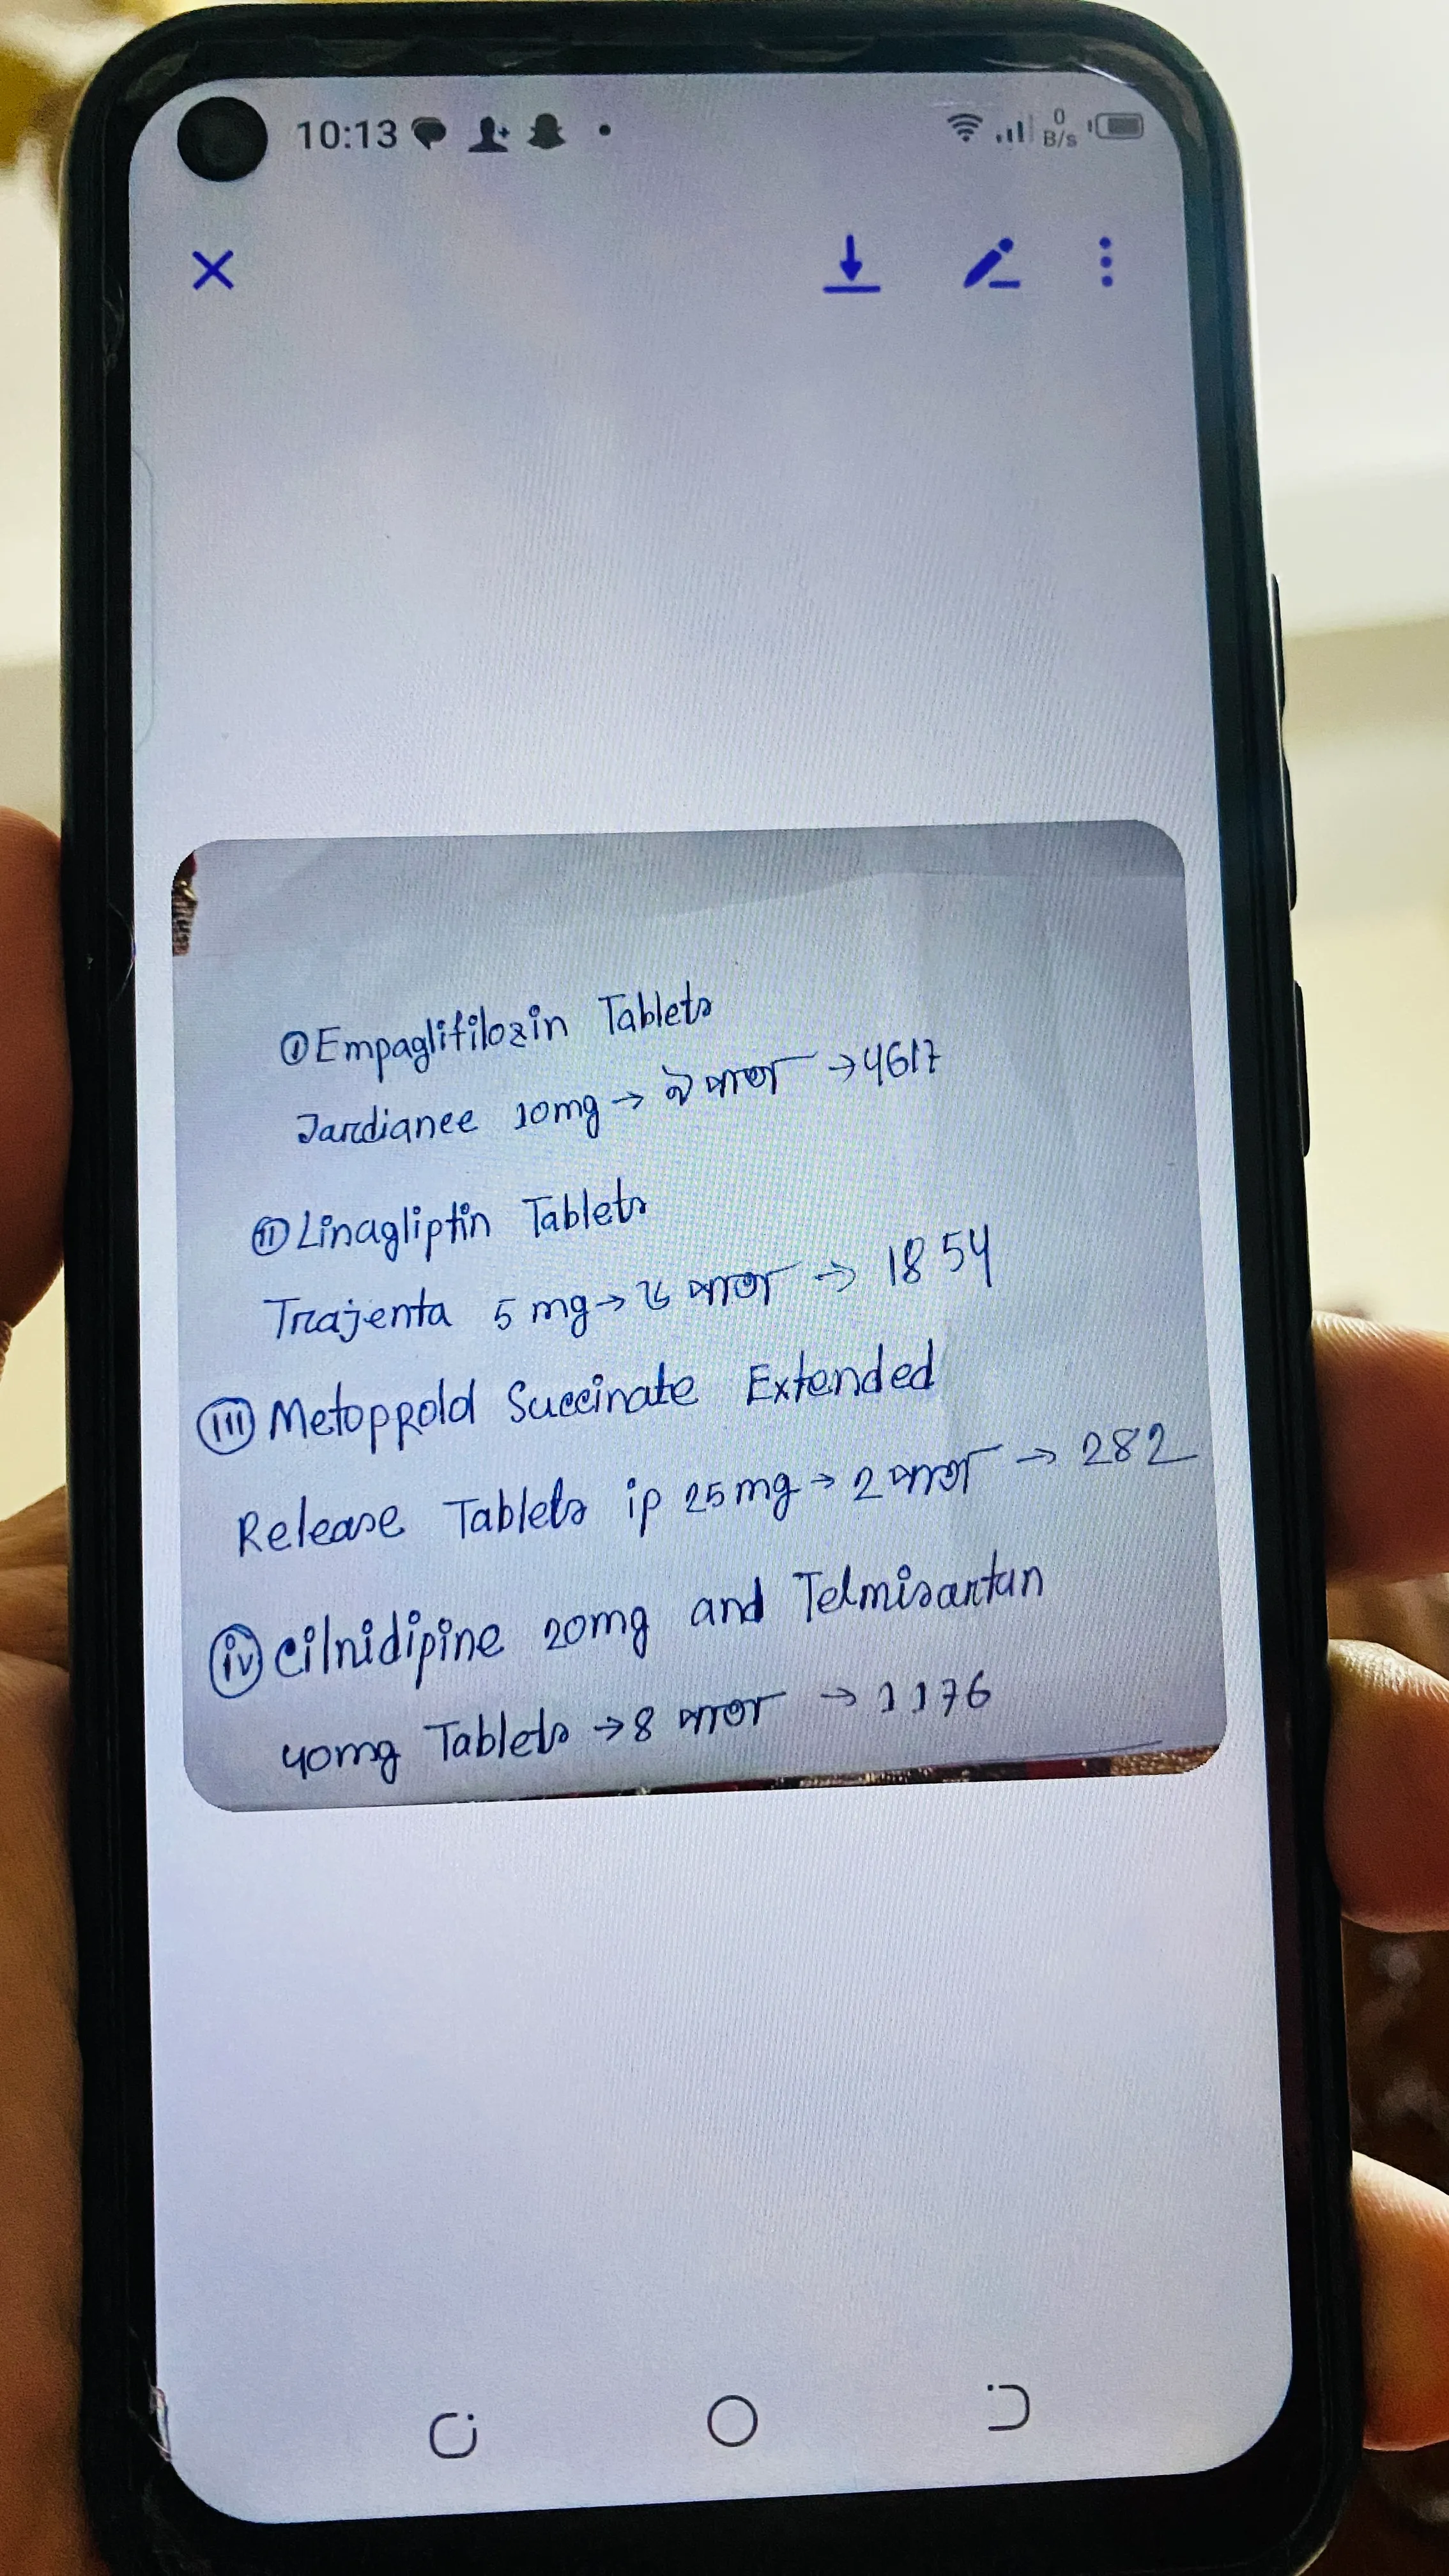 10:13
0
B/s
① Empaglifilozin Tablets
Jardianee 10mg → ৯ পাতা → 4617
ii Linagliptin Tablets
Trajenta 5 mg → ৬ পাতা → 1854
iii Metoprold Succinate Extended
Release Tablets ip 25mg → 2 পাতা → 282
iv Cilnidipine 20mg and Telmisartan
40mg Tablets → 8 পাতা → 1176